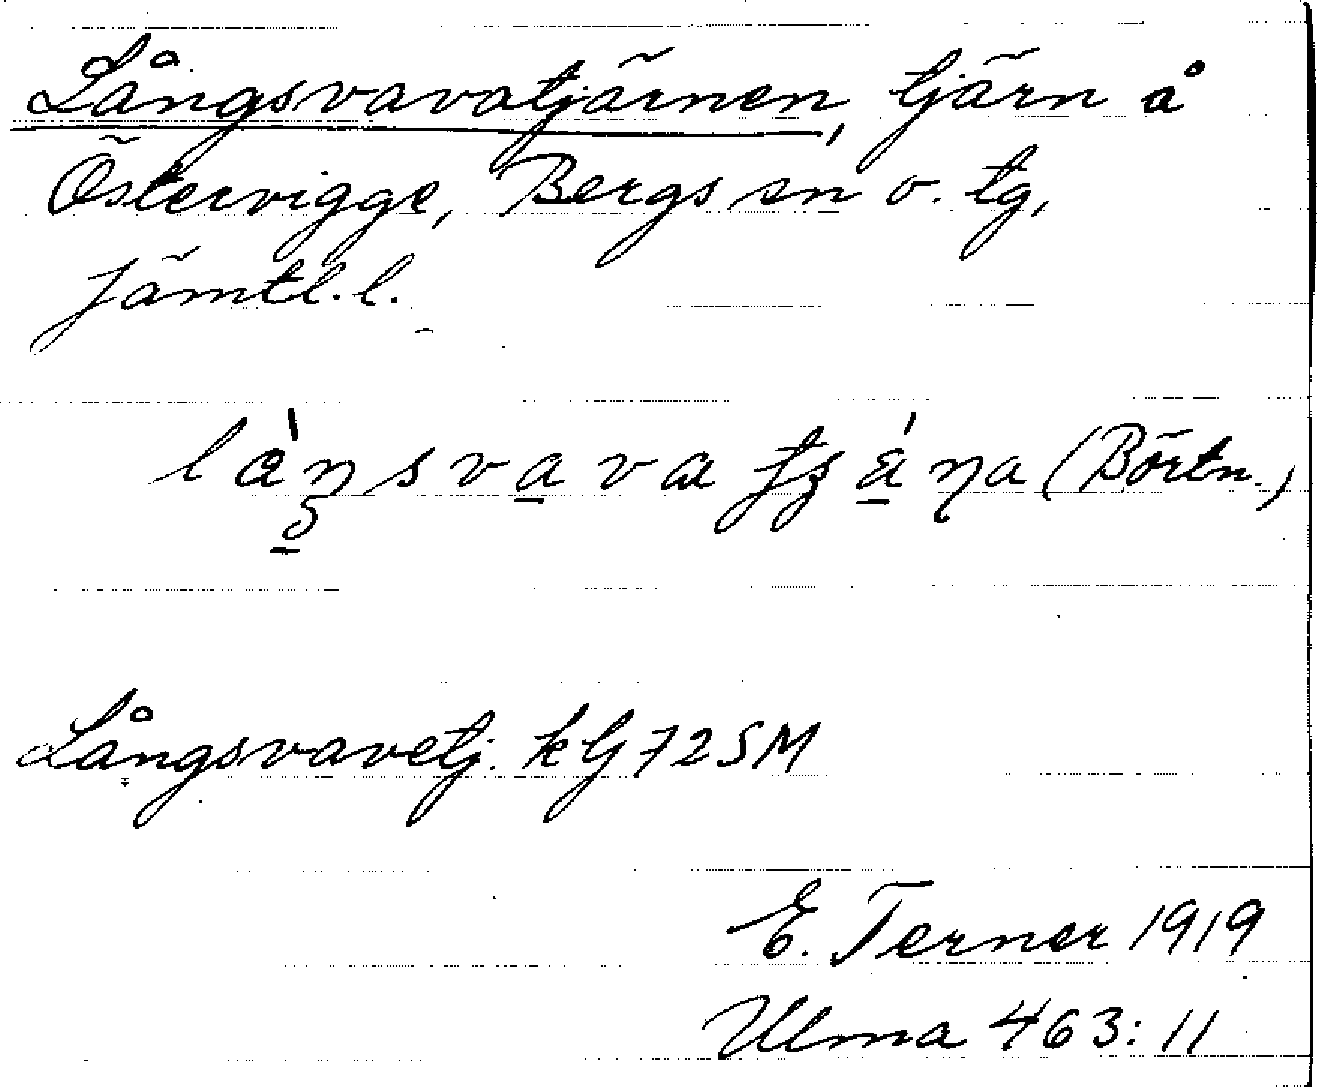 Långsvavatjärnen, tjärn å
Östervigge, Bergs sn o. tg,
Jämtl. l.
(Börtn.)
Långsvavetj. kG72SM
E. Terner 1919
Ulma 463:11